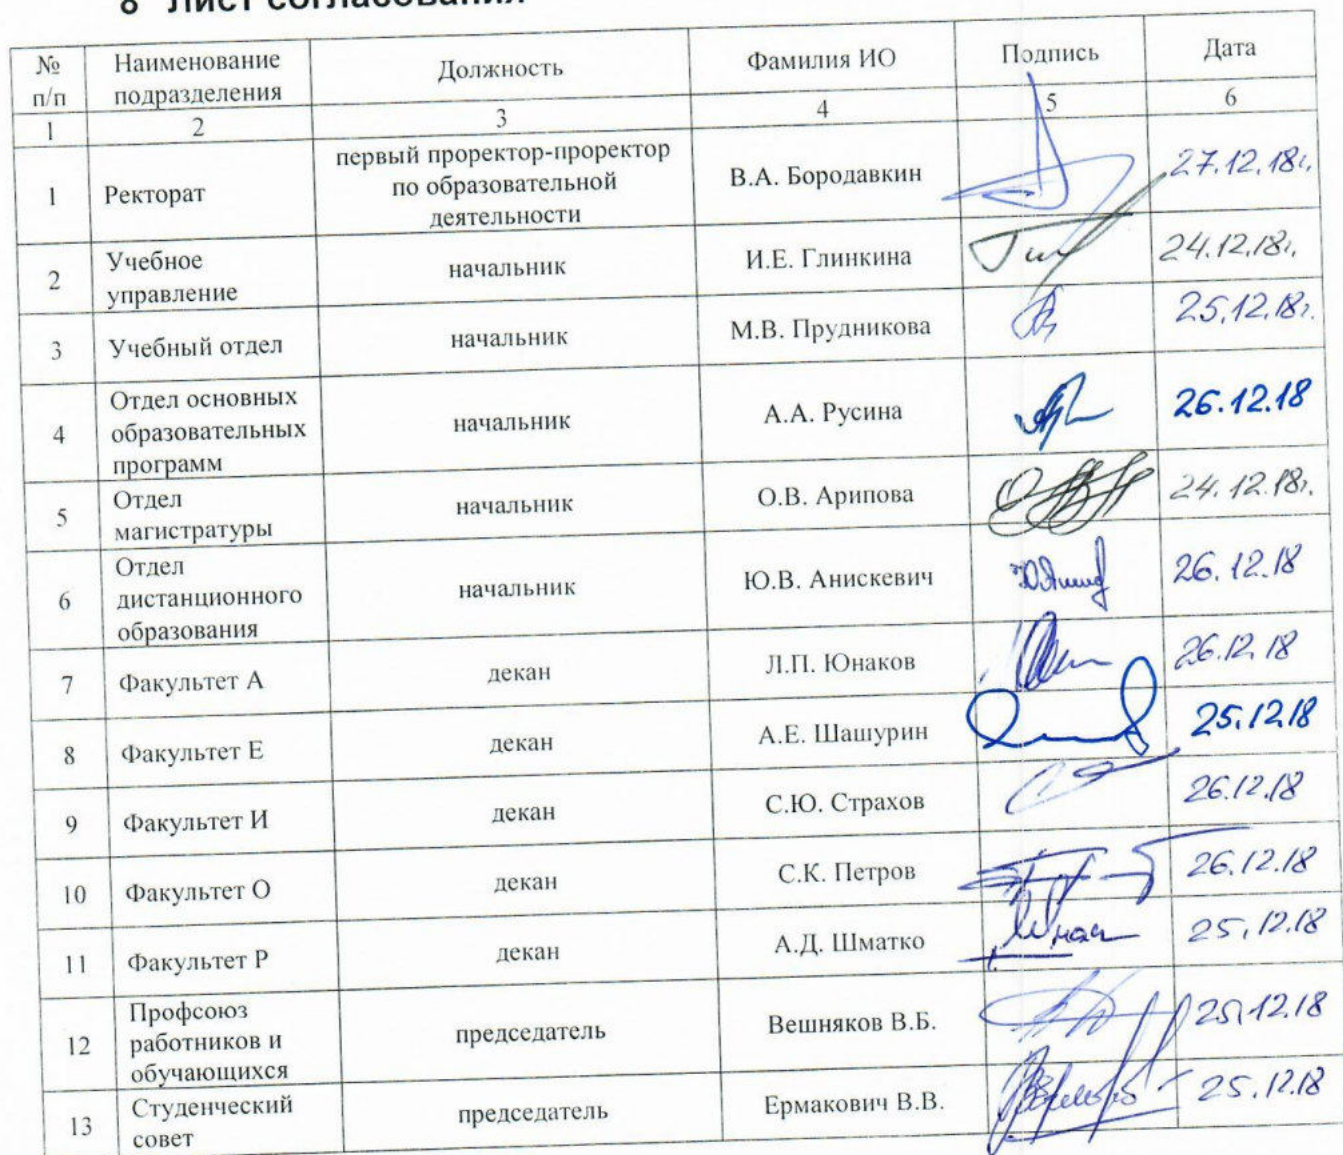 8 Лист согласования
№ п/п Наименование подразделения Должность Фамилия ИО Подпись Дата
1 2 3 4 5 6
1 Ректорат первый проректор-проректор по образовательной деятельности В.А. Бородавкин 27.12.18г.
2 Учебное управление начальник И.Е. Глинкина 24.12.18г.
3 Учебный отдел начальник М.В. Прудникова 25.12.18г.
4 Отдел основных образовательных программ начальник А.А. Русина 26.12.18
5 Отдел магистратуры начальник О.В. Арипова 24.12.18г.
6 Отдел дистанционного образования начальник Ю.В. Анискевич 26.12.18
7 Факультет А декан Л.П. Юнаков 26.12.18
8 Факультет Е декан А.Е. Шашурин 25.12.18
9 Факультет И декан С.Ю. Страхов 26.12.18
10 Факультет О декан С.К. Петров 26.12.18
11 Факультет Р декан А.Д. Шматко 25.12.18
12 Профсоюз работников и обучающихся председатель Вешняков В.Б. 25.12.18
13 Студенческий совет председатель Ермакович В.В. 25.12.18